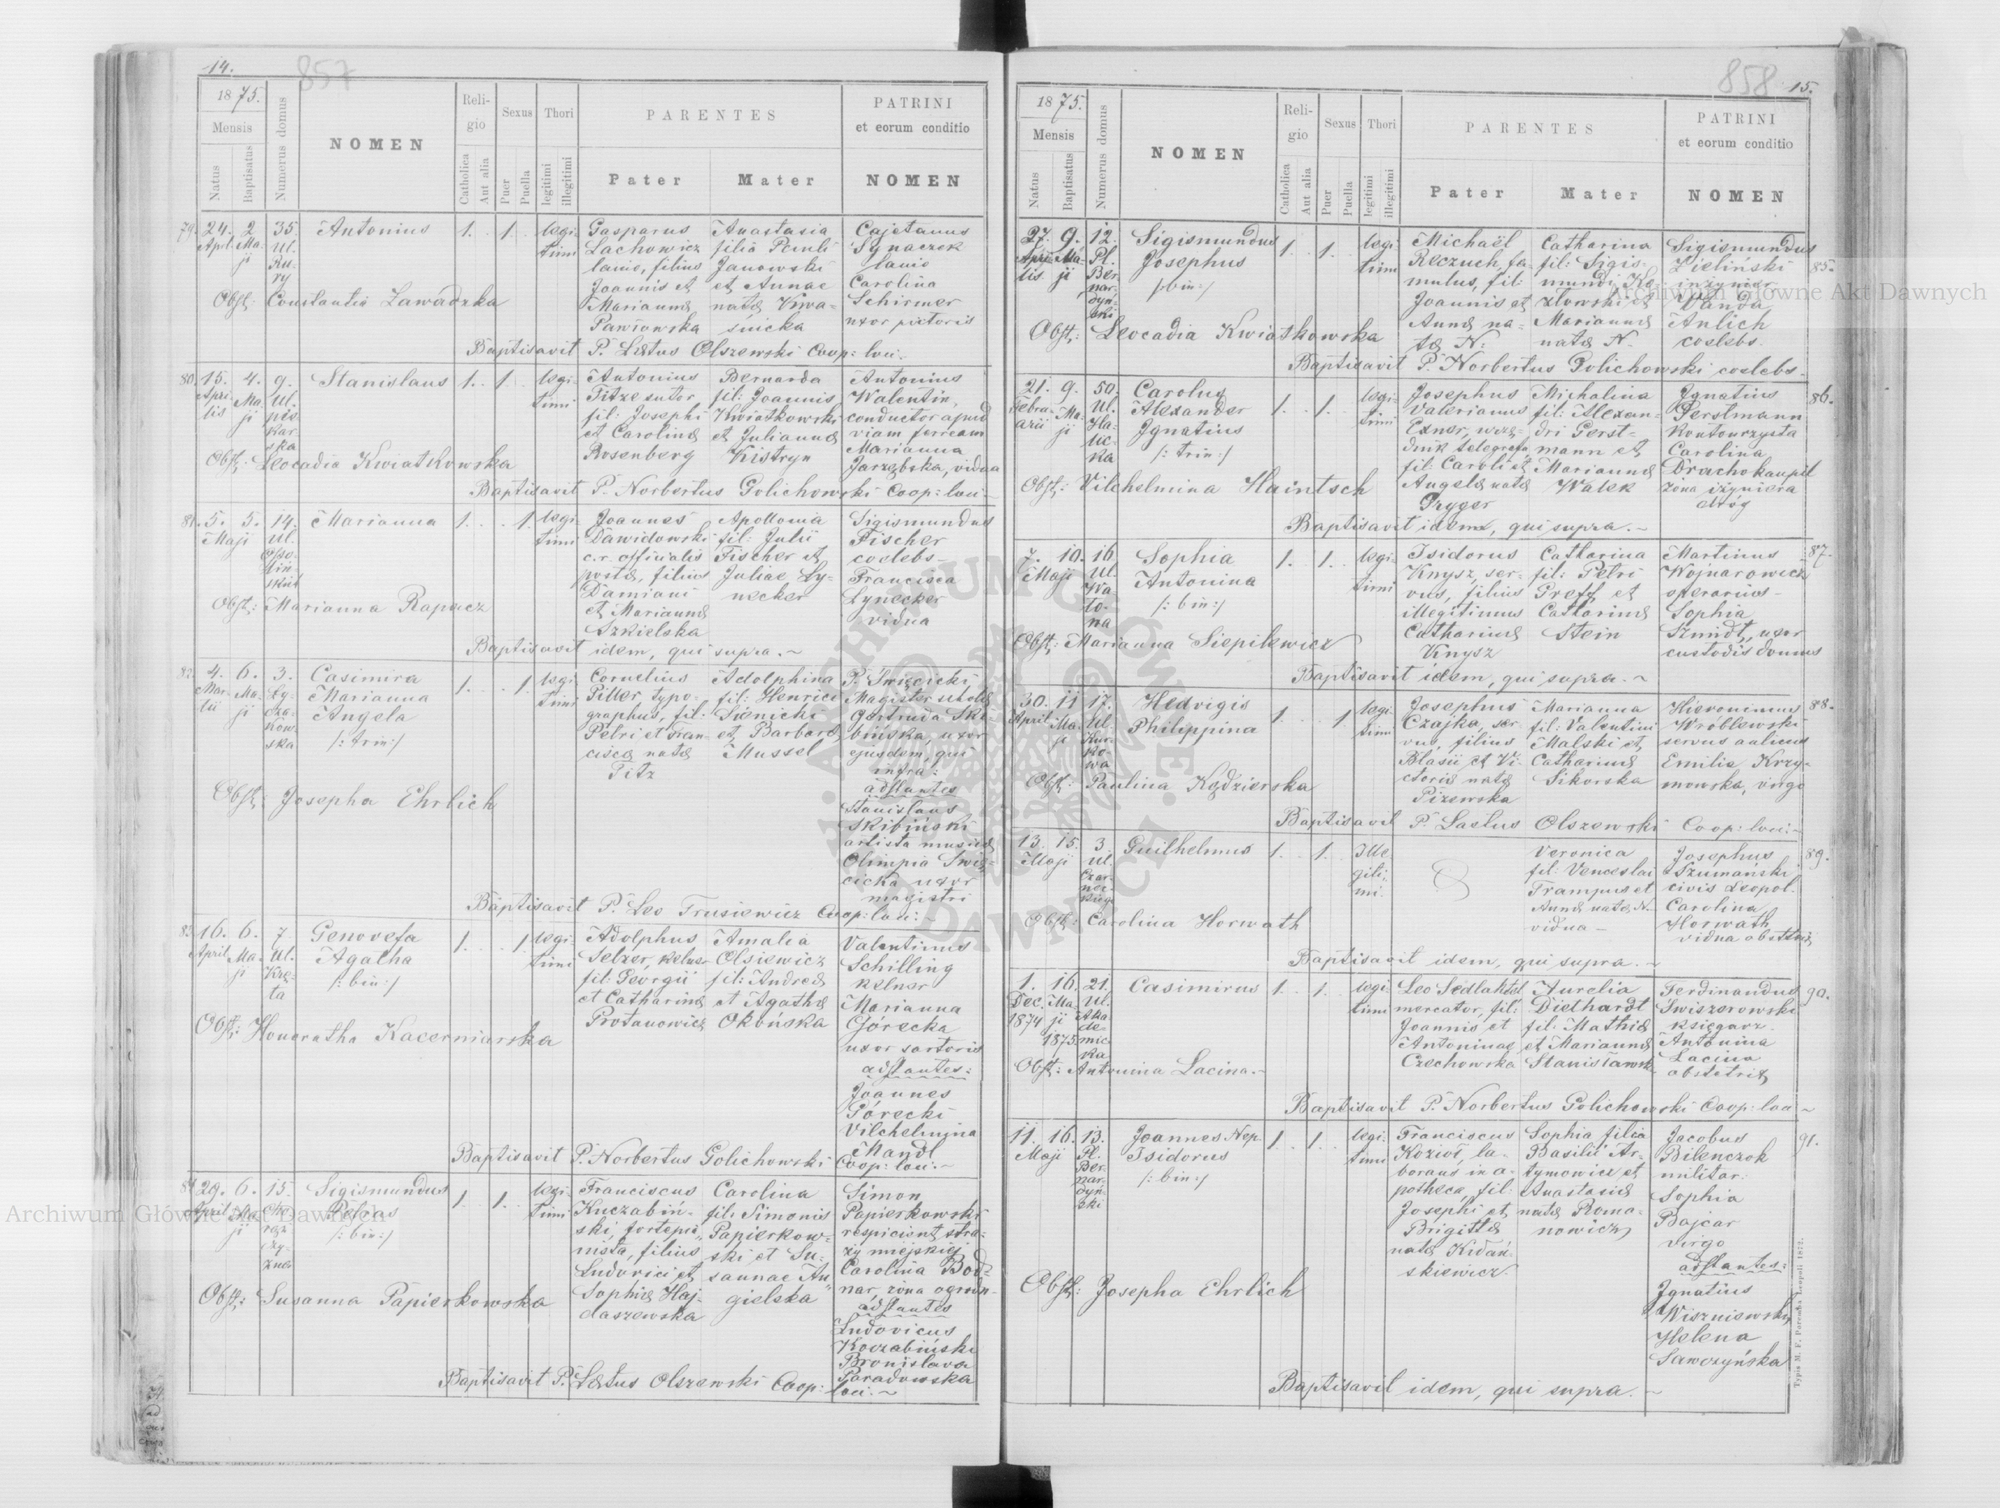 14.
857
1875.
Mensis
Natus
Baptisatus
Numerus domus
NOMEN
Reli-
gio
Catholica
Aut alia
Sexus
Puer
Puella
Thori
legitimi
illegitimi
PARENTES
Pater
Mater
PATRINI
et eorum conditio
NOMEN
79. 24. 2 35. Antonius 1. 1. legi-
April Ma- Ul. timi
ji
Gasparus
Lachowicz
lanio, filius
Joannis et
Mariannæ
Pawłowska
Anastasia
filia Pauli
Janowski
et Annae
natæ Kwa-
śnicka
Cajetanus
Synaczek
lanio
Carolina
Schirmer
uxor pictoris
Obst: Constantia Zawadzka
Baptisavit P. Lætus Olszewski Coop: loci.
80. 15. 4. 9. Stanislaus 1. 1. legi-
Apri- Ma- Ul. timi
lis ji pie-
kar-
ska
Antonius
Titze sutor,
fil: Josephi
et Carolinæ
Rosenberg
Bernarda
fil: Joannis
Kwiatkowski
et Juliannæ
Kistryn
Antonius
Walentin,
conductor apud
viam ferream
Marianna
Jarzębska, vidua
Obst: Leocadia Kwiatkowska
Baptisavit P. Norbertus Golichowski Coop: loci.
81. 5. 5. 14. Marianna 1. 1. legi-
Maji Ul. timi
Joannes
Dawidowski
c.r. officialis
postæ, filius
Damiani
et Mariannæ
Szkielska
Apollonia
fil: Julii
Fischer et
Juliae Ly-
necker
Sigismundus
Fischer
coelebs
Francisca
Lynecker
vidua
Obst: Marianna Rapacz
Baptisavit idem, qui supra.
82. 4. 6. 3. Casimira 1. 1. legi-
Mar- Ma- Ły- Marianna timi
tii ji cza- Angela
kow- /:trin:/
ska
Cornelius
Piller typo-
graphus, fil:
Petri et Fran-
ciscæ natæ
Titz
Adolphina
fil: Henrici
Sienicki
et Barbaræ
Mussel
P. Święcicki
Magister scholæ
Gertruda Ski-
bińska uxor
ejusdem, qui
infra:
adstantes
Stanislaus
Skibiński
artista musicæ
Olimpia Świę-
cicka uxor
magistri
Obst: Josepha Ehrlich
Baptisavit P. Leo Trusiewicz Coop: loci.
83. 16. 6. 7. Genovefa 1. 1 legi-
April Ma- Ul. Agatha timi
ji Krę- /:bin:/
ta
Adolphus
Selzer, kelner
fil: Georgii
et Catharinæ
Protanowicz
Amalia
Olsiewicz
fil: Andreæ
et Agathæ
Okońska
Valentinus
Schilling
kelner
Marianna
Górecka
uxor sartoris
adstantes:
Joannes
Górecki
Vilchelmina
Mandl
Obst: Honoratha Kacermiarska
Baptisavit P. Norbertus Golichowski Coop: loci.
84. 29. 6. 15. Sigismundus 1. 1. legi-
April Ma- Petrus timi
ji /:bin:/
Franciscus
Kuczabiń-
ski, fortepia-
nista, filius
Ludovici et
Sophiæ Haj-
daszewska
Carolina
fil: Simonis
Papierkow-
ski et Su-
sannae An-
gielska
Simon
Papierkowski
respicient stra-
ży miejskiej
Carolina Bod-
nar, żona ogrodn-
adstantes
Ludovicus
Koczabiński
Bronislava
Paradowska
Obst: Susanna Papierkowska
Baptisavit P. Lætus Olszewski Coop: loci.
858
15.
1875.
Mensis
Natus
Baptisatus
Numerus domus
NOMEN
Reli-
gio
Catholica
Aut alia
Sexus
Puer
Puella
Thori
legitimi
illegitimi
PARENTES
Pater
Mater
PATRINI
et eorum conditio
NOMEN
27. 9. 12. Sigismundus 1. 1. legi- 85.
Apri- Ma- Pl. Josephus timi
lis ji Ber- /:bin:/
nar-
dyń-
ski
Michaël
Reczuch, fa-
mulus, fil:
Joannis et
Annæ na-
tæ N.
Catharina
fil: Sigis-
mundi Ko-
złowski et
Mariannæ
natæ N.
Sigismundus
Zieliński
inzynier
Vanda
Anlich
coelebs.
Obst: Leocadia Kwiatkowska
Baptisavit P. Norbertus Golichowski coelebs.
21. 9. 50. Carolus 1. 1. legi- 86.
Febru- Ma- Ul. Alexander timi
arii ji Ha- Ignatius
lic- /:trin:/
ka
Josephus
Valerianus
Exner, urzę-
dnik telegrafu
fil: Caroli et
Angelæ natæ
Pryger
Michalina
fil: Alexan-
dri Gerst-
mann et
Mariannæ
Walek
Ignatius
Gerstmann
Kontorzysta
Carolina
Drachokaupil
żona inżyniera
dróg
Obst: Vilchelmina Haintsch
Baptisavit idem, qui supra.
7. 10. 16. Sophia 1. 1. legi- 87.
Maji Ul. Antonina timi
Wa- /:bin:/
to-
na
Isidorus
Knysz, ser-
vus, filius
illegitimus
Catharinæ
Knysz
Catharina
fil: Petri
Greff et
Catharinæ
Stein
Martinus
Wojnarowicz
operarius
Sophia
Szmidt, uxor
custodis domus
Obst: Marianna Siepilewicz
Baptisavit idem, qui supra.
30. 11 17. Hedvigis 1. 1 legi- 88.
April Ma- Ul. Philippina timi
ji Kur-
ko-
wa
Josephus
Czajka, ser-
vus, filius
Blasii et Vi-
ctoriæ natæ
Pizewska
Marianna
fil: Valentini
Malski et
Catharinæ
Sikorska
Hieronimus
Wróblewski
servus aulicus
Emilia Krzy-
mowska, virgo
Obst: Paulina Kędzierska
Baptisavit P. Laetus Olszewski Coop: loci.
13. 15. 3. Guilhelmus 1. 1. Ille- 89.
Maji Ul. giti-
Czar- mi.
nec-
kiego
Veronica
fil: Venceslai
Trampus et
Annæ natæ N.
vidua
Josephus
Szumański
civis Leopol.
Carolina
Horwath
vidua obstetrix
Obst: Carolina Horwath
Baptisavit idem, qui supra.
1. 16. 21. Casimirus 1. 1. legi- 90.
Dec. Ma- Ul. timi
1874 ji Aka-
1875. de-
mic-
ka
Leo Sedlahtel
mercator, fil:
Joannis et
Antoninae
Czechowska
Aurelia
Diethardt
fil: Mathiæ
et Mariannæ
Stanisławsk-
Ferdinandus
Swiszerowski
księgarz.
Antonina
Lacina
obstetrix
Obst: Antonina Lacina.
Baptisavit P. Norbertus Golichowski Coop: loci
11. 16. 13. Joannes Nep. 1 1. legi- 91.
Maji Pl. Isidorus timi
Ber- /:bin:/
nar-
dyń-
ski
Franciscus
Kozioł, la-
borans in a-
potheca, fil:
Josephi et
Brigittæ
natæ Krdań-
skiewicz.
Sophia filia
Basilii Ar-
tymowicz et
Anastasiæ
natæ Roma-
nowicz
Jacobus
Bilenczok
militar.
Sophia
Bajcar
virgo
adstantes:
Ignatius
Wiszniewski,
Helena
Sawczyńska
Obst: Josepha Ehrlich
Baptisavit idem, qui supra.
Typis M. F. Poremba Leopoli 1872.
Archiwum Główne Akt Dawnych
Archiwum Główne Akt Dawnych
ARCHIWUM GŁÓWNE AKT DAWNYCH